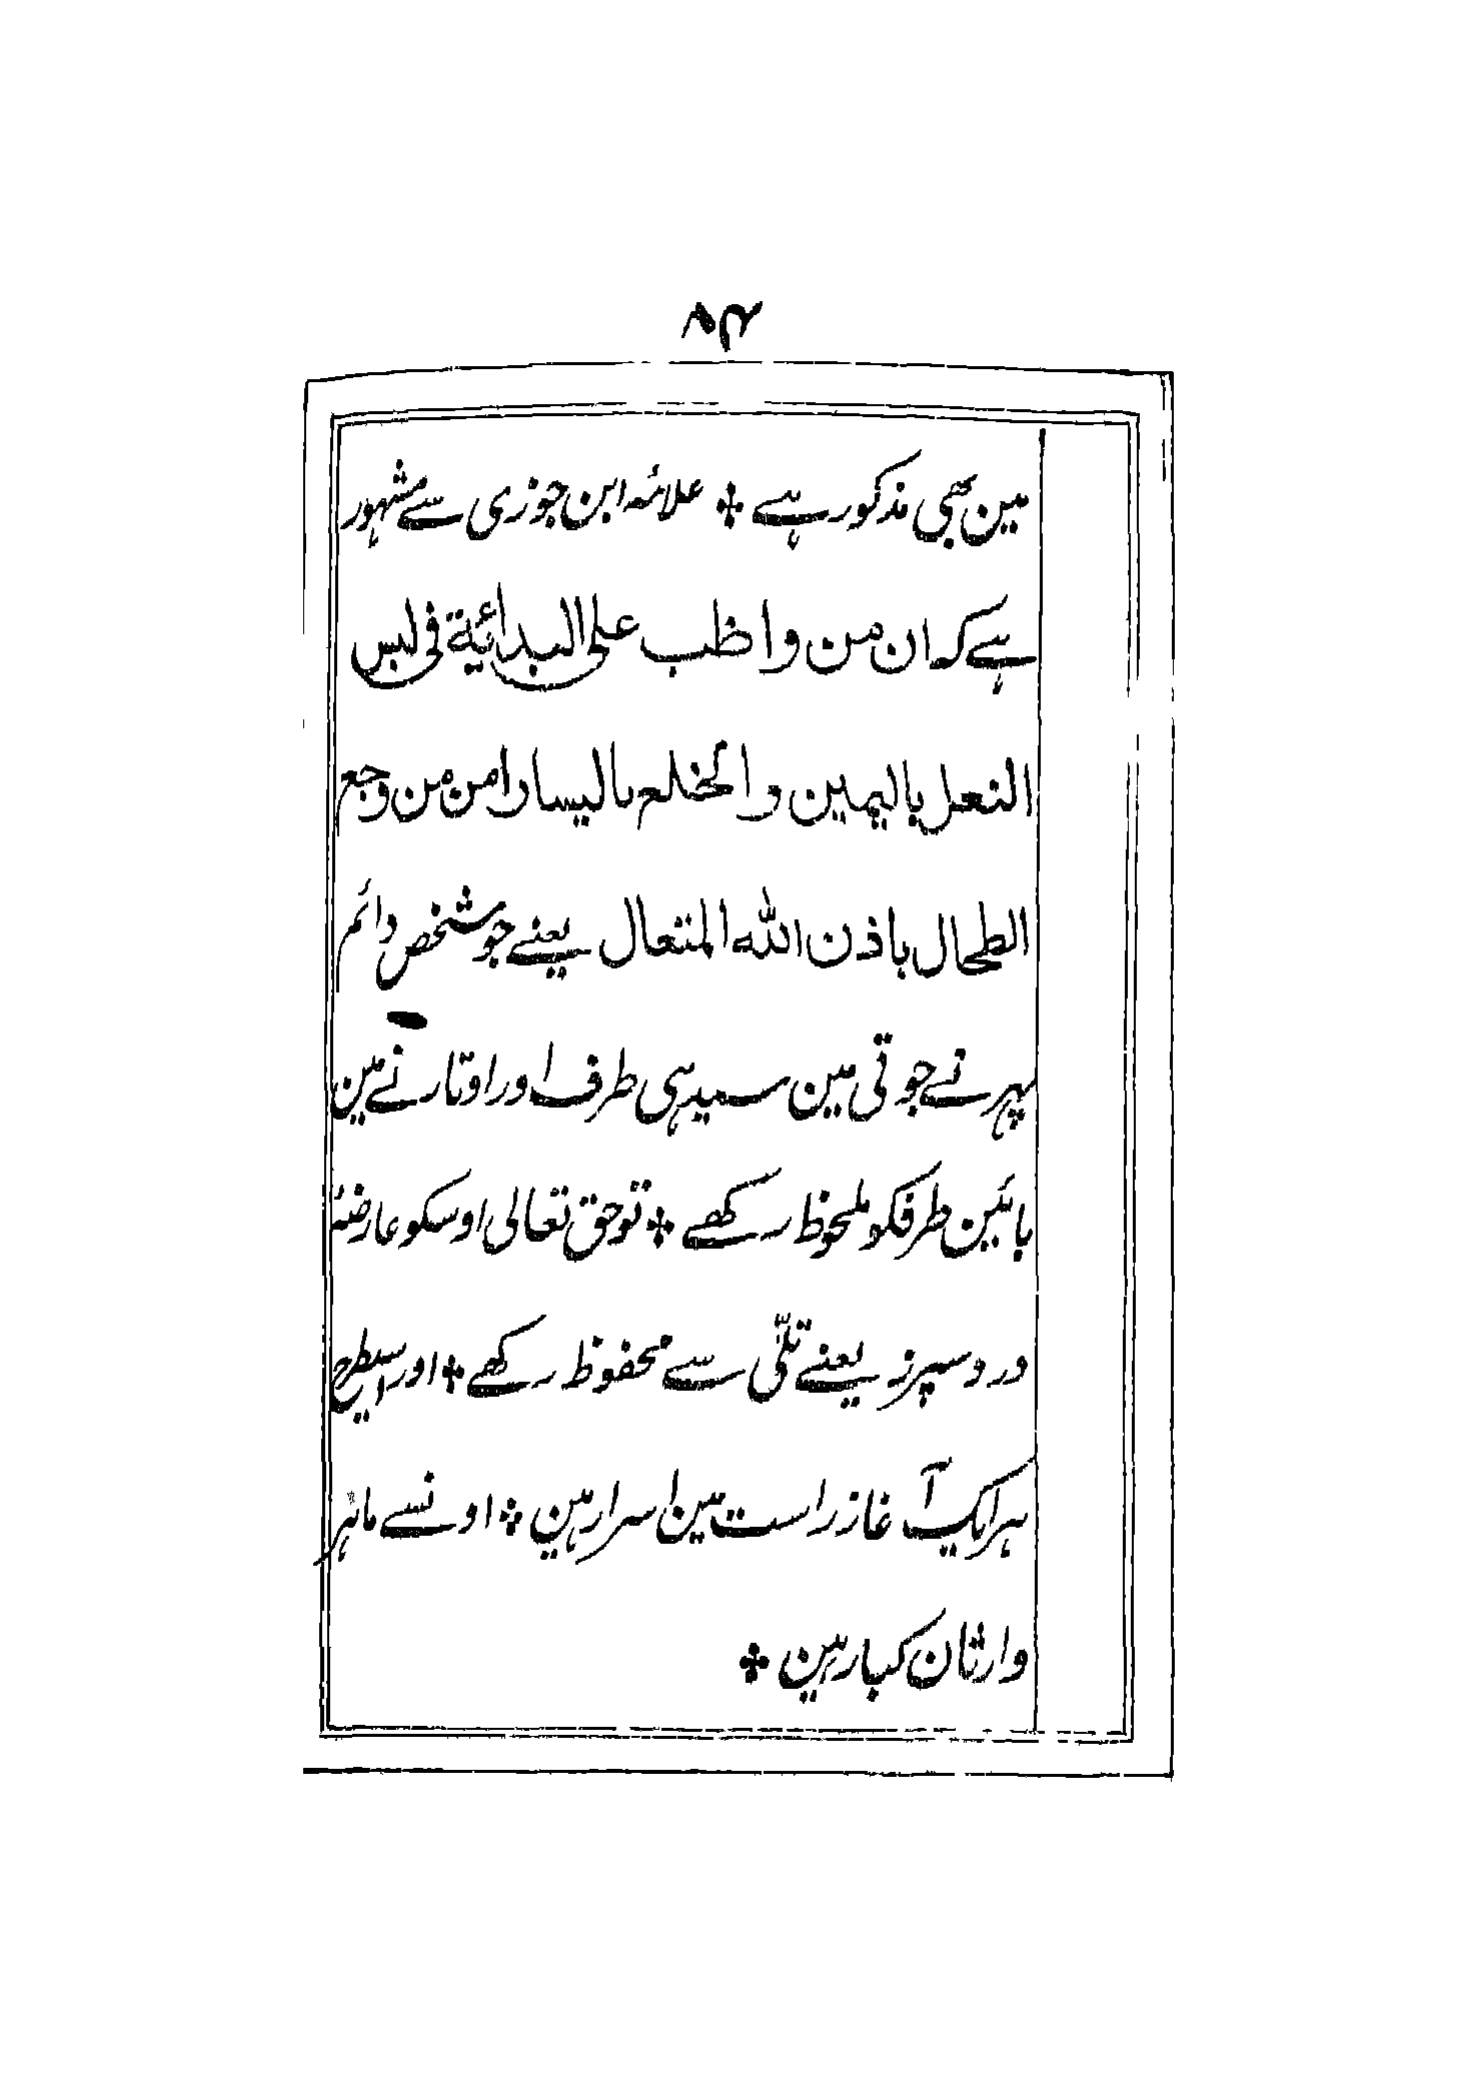 ۸۴
مین بھی مذکور ہے ❖ علامہ ابن جوزی سے مشہور
ہے کہ ان من واظب علی البدائیة فی لبس
النعل بالیمین والخلع بالیسار امن من وجع
الطحال باذن اللہ المتعال یعنے جو شخص دائم
پہرتے جوتی مین سیدہی طرف اور اوتارنے مین
بائین طرفکو ملحوظ رکھے ❖ تو حق تعالی اوسکو عارضۂ
درد سپرز یعنے تلّی سے محفوظ رکھے ❖ اور اسیطرح
ہر ایک آغاز راست مین اسرار ہین ❖ اونسے ماہر
وارثان کبار ہین ❖